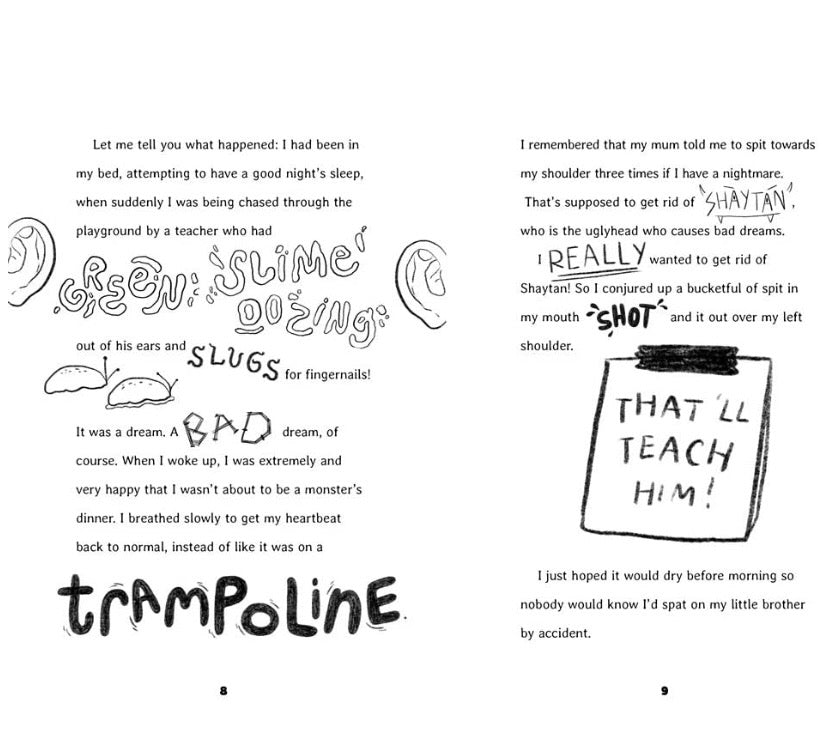 Let me tell you what happened: I had been in
my bed, attempting to have a good night's sleep,
when suddenly I was being chased through the
playground by a teacher who had
GREEN SLIME
OOZING
out of his ears and SLUGS for fingernails!
It was a dream. A BAD dream, of
course. When I woke up, I was extremely and
very happy that I wasn't about to be a monster's
dinner. I breathed slowly to get my heartbeat
back to normal, instead of like it was on a
trAmPoLinE.
8
I remembered that my mum told me to spit towards
my shoulder three times if I have a nightmare.
That's supposed to get rid of SHAYTAN,
who is the uglyhead who causes bad dreams.
I REALLY wanted to get rid of
Shaytan! So I conjured up a bucketful of spit in
my mouth SHOT and it out over my left
shoulder.
THAT'LL
TEACH
HIM!
I just hoped it would dry before morning so
nobody would know I'd spat on my little brother
by accident.
9